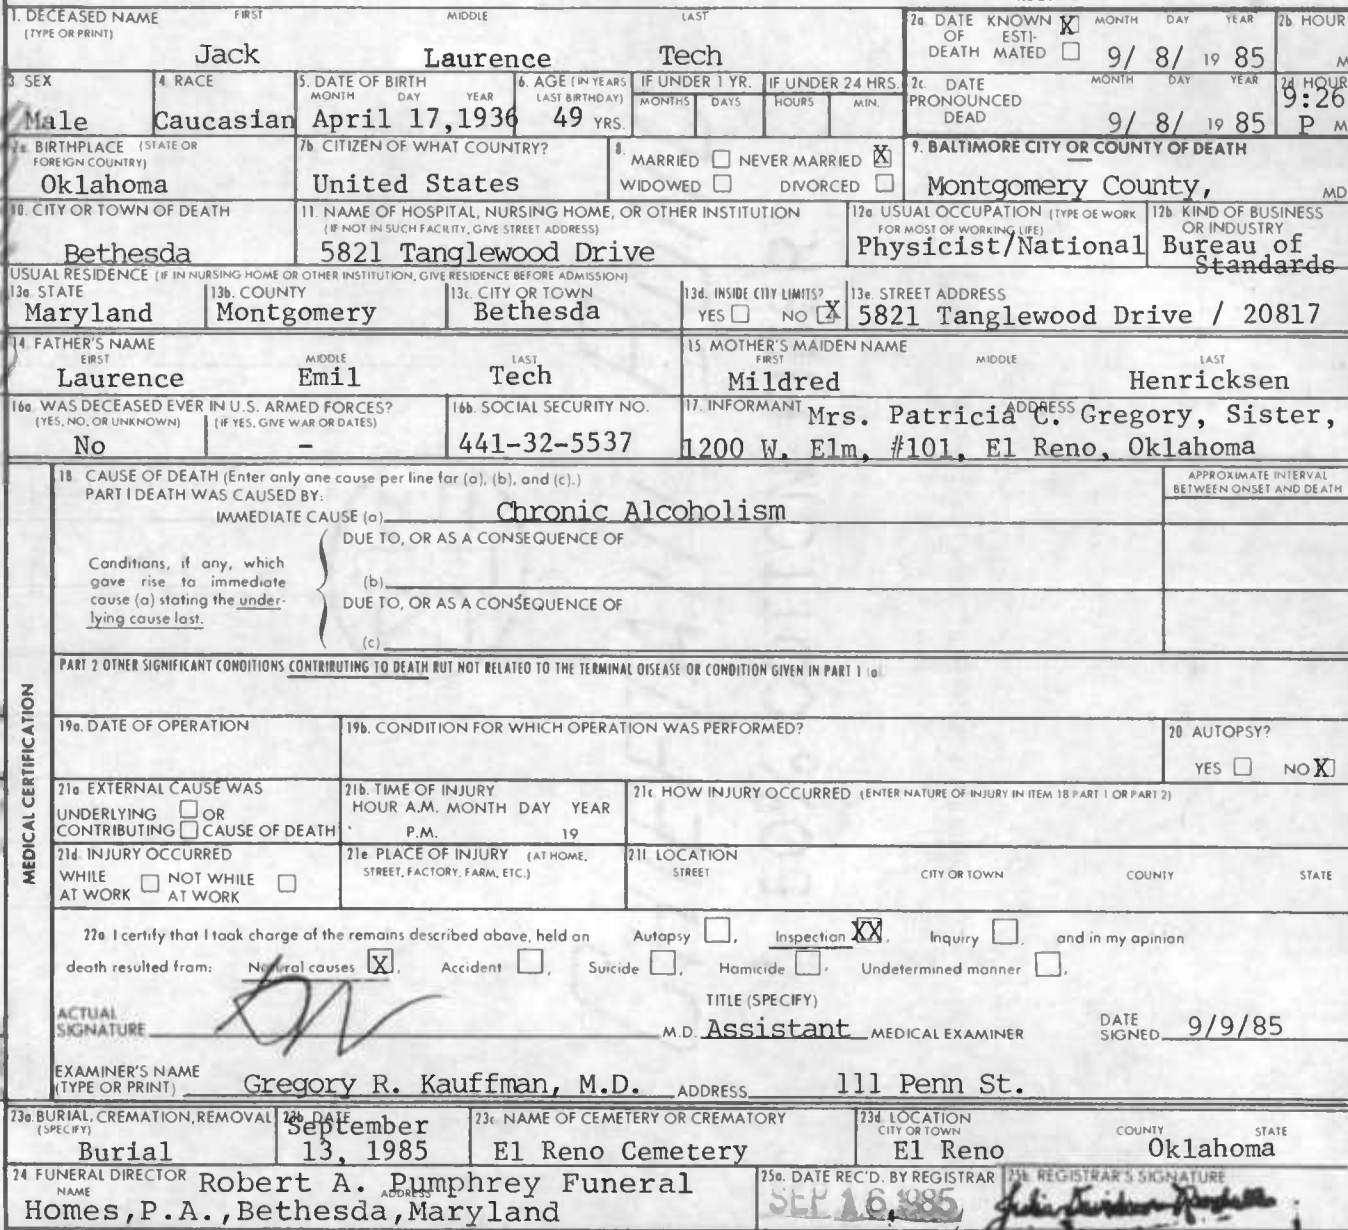 1. DECEASED NAME FIRST MIDDLE LAST
(TYPE OR PRINT)
Jack Laurence Tech
2a DATE OF DEATH KNOWN X ESTIMATED MONTH DAY YEAR
9/ 8/ 19 85
2b HOUR
M
3 SEX
Male
4. RACE
Caucasian
5. DATE OF BIRTH
MONTH DAY YEAR
April 17,1936
6. AGE (IN YEARS LAST BIRTHDAY)
49 YRS.
IF UNDER 1 YR.
MONTHS DAYS
IF UNDER 24 HRS.
HOURS MIN.
2c. DATE PRONOUNCED DEAD
MONTH DAY YEAR
9/ 8/ 19 85
2d HOUR
9:26
P M
7a. BIRTHPLACE (STATE OR FOREIGN COUNTRY)
Oklahoma
7b. CITIZEN OF WHAT COUNTRY?
United States
8. MARRIED NEVER MARRIED X
WIDOWED DIVORCED
9. BALTIMORE CITY OR COUNTY OF DEATH
Montgomery County, MD
10. CITY OR TOWN OF DEATH
Bethesda
11. NAME OF HOSPITAL, NURSING HOME, OR OTHER INSTITUTION
(IF NOT IN SUCH FACILITY, GIVE STREET ADDRESS)
5821 Tanglewood Drive
12a USUAL OCCUPATION (TYPE OF WORK FOR MOST OF WORKING LIFE)
Physicist/National
12b KIND OF BUSINESS OR INDUSTRY
Bureau of
Standards
USUAL RESIDENCE (IF IN NURSING HOME OR OTHER INSTITUTION, GIVE RESIDENCE BEFORE ADMISSION)
13a. STATE
Maryland
13b. COUNTY
Montgomery
13c. CITY OR TOWN
Bethesda
13d. INSIDE CITY LIMITS?
YES NO X
13e. STREET ADDRESS
5821 Tanglewood Drive / 20817
14. FATHER'S NAME
FIRST MIDDLE LAST
Laurence Emil Tech
15. MOTHER'S MAIDEN NAME
FIRST MIDDLE LAST
Mildred Henricksen
16a WAS DECEASED EVER IN U.S. ARMED FORCES?
(YES, NO, OR UNKNOWN) (IF YES, GIVE WAR OR DATES)
No –
16b. SOCIAL SECURITY NO.
441-32-5537
17. INFORMANT ADDRESS
Mrs. Patricia C. Gregory, Sister,
1200 W. Elm, #101, El Reno, Oklahoma
MEDICAL CERTIFICATION
18 CAUSE OF DEATH (Enter only one cause per line for (a), (b), and (c).)
PART I DEATH WAS CAUSED BY:
APPROXIMATE INTERVAL BETWEEN ONSET AND DEATH
IMMEDIATE CAUSE (a) Chronic Alcoholism
DUE TO, OR AS A CONSEQUENCE OF
Conditions, if any, which
gave rise to immediate
cause (a) stating the under-
lying cause last.
(b)
DUE TO, OR AS A CONSEQUENCE OF
(c)
PART 2 OTHER SIGNIFICANT CONDITIONS CONTRIBUTING TO DEATH BUT NOT RELATED TO THE TERMINAL DISEASE OR CONDITION GIVEN IN PART 1 (a)
19a. DATE OF OPERATION
19b. CONDITION FOR WHICH OPERATION WAS PERFORMED?
20 AUTOPSY?
YES NO X
21a EXTERNAL CAUSE WAS
UNDERLYING OR
CONTRIBUTING CAUSE OF DEATH
21b. TIME OF INJURY
HOUR A.M. MONTH DAY YEAR
P.M. 19
21c HOW INJURY OCCURRED (ENTER NATURE OF INJURY IN ITEM 18 PART 1 OR PART 2)
21d INJURY OCCURRED
WHILE AT WORK NOT WHILE AT WORK
21e PLACE OF INJURY (AT HOME, STREET, FACTORY, FARM, ETC.)
21f. LOCATION
STREET CITY OR TOWN COUNTY STATE
22a I certify that I took charge of the remains described above, held an Autopsy , Inspection XX, Inquiry , and in my opinion
death resulted from: Natural causes X, Accident , Suicide , Homicide , Undetermined manner ,
ACTUAL SIGNATURE
TITLE (SPECIFY)
M.D. Assistant MEDICAL EXAMINER
DATE SIGNED 9/9/85
EXAMINER'S NAME
(TYPE OR PRINT) Gregory R. Kauffman, M.D. ADDRESS 111 Penn St.
23a. BURIAL, CREMATION, REMOVAL
(SPECIFY)
Burial
23b DATE
September
13, 1985
23c NAME OF CEMETERY OR CREMATORY
El Reno Cemetery
23d LOCATION
CITY OR TOWN COUNTY STATE
El Reno Oklahoma
24 FUNERAL DIRECTOR
NAME ADDRESS
Robert A. Pumphrey Funeral
Homes,P.A.,Bethesda,Maryland
25a. DATE REC'D. BY REGISTRAR
SEP 16 1985
25b REGISTRAR'S SIGNATURE